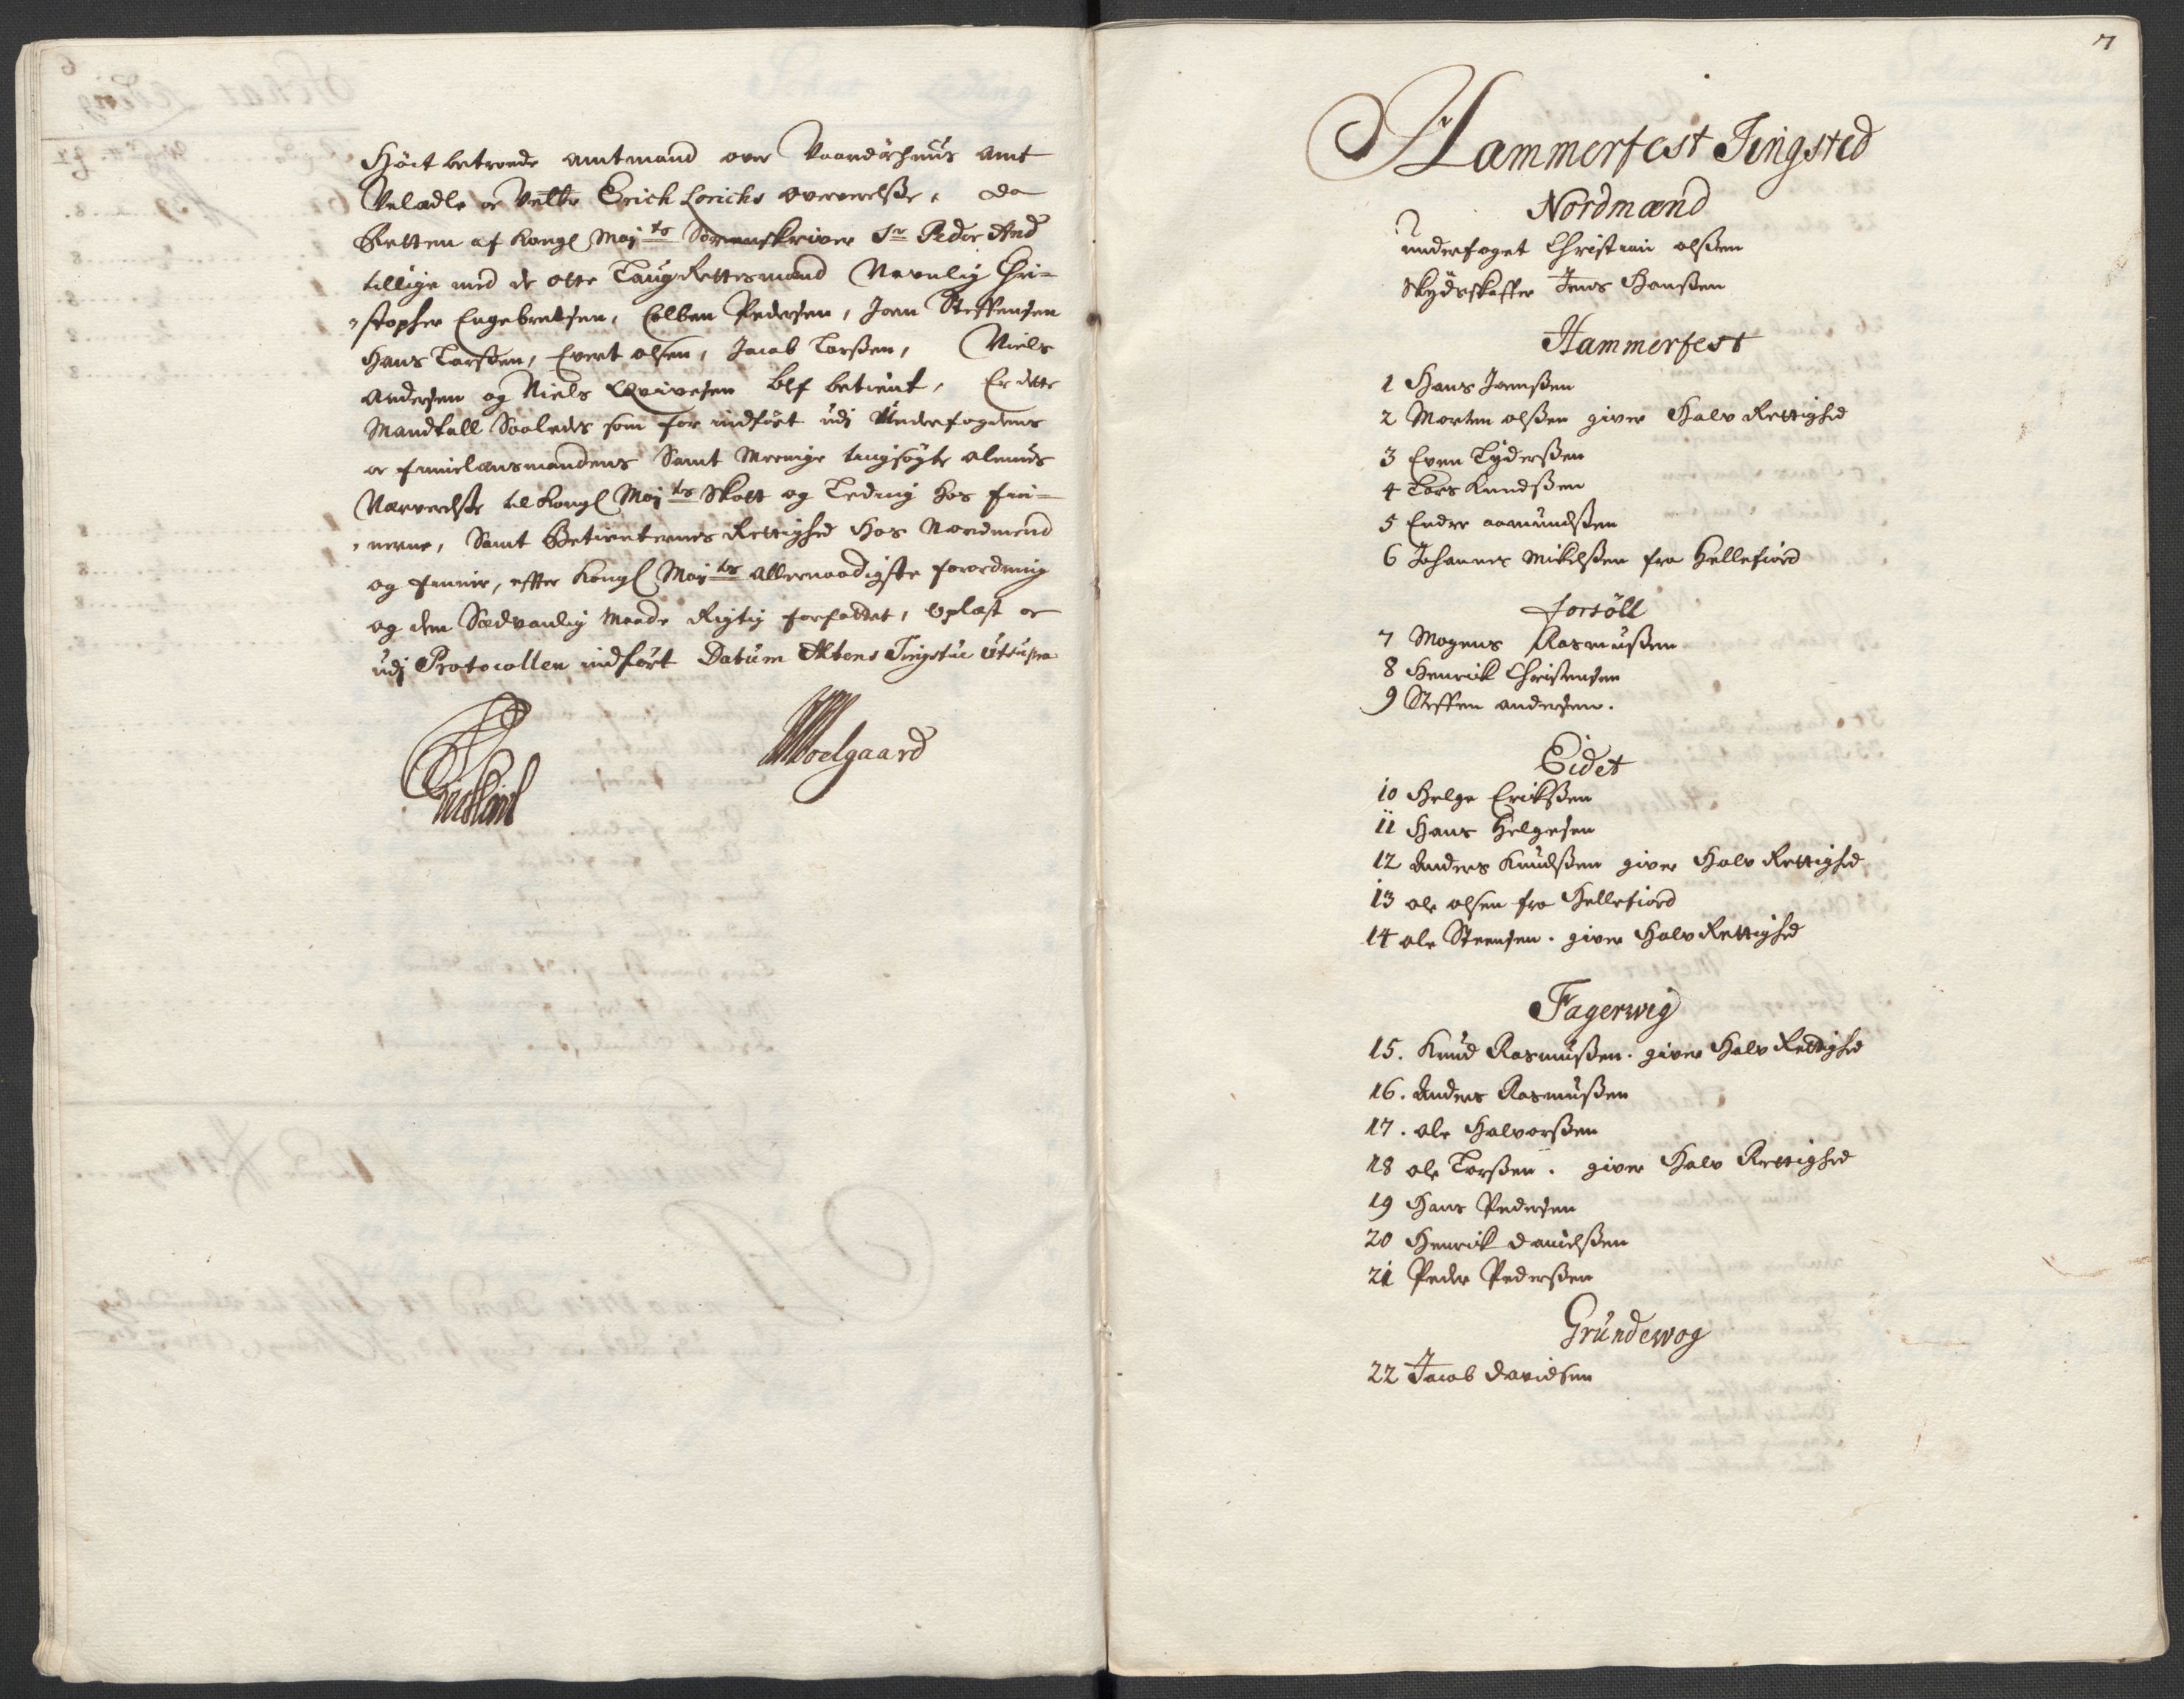 Höit betroede amtmand over Vaardöehuus amt
Velædle og Velbr Erich Lorichs oververelße, da
Retten af Kongl Maj ts Sorenskriver Sr Peder And
tillige med de otte Laug Rettesmænd Navnlig Chri-
stopher Engebretsen, Colben Pedersen, Joen Steffensen
Hans Larsen, Evert olsen, Jacob Larßen, Niels
Andersen og Niels blf betient, Er dette
Mandtall Saaledes som for indfört udj Underfogdens
og finnelensmandens Samt Meenige tingsögte almues
Nærverelße til Kongl Maj ts Skatt og Leding hos fin-
nerne, Samt Betienternes Rettighed Hos Nordmend
og finner, efter Kongl Maj ts allernaadigste forordning
og den Sædvanlig Maade Rigtig forfattet, Oplæst og
udj Protocollen indfört Datum Altens Tingstue Utsupra
Moelgaard
7
Hammerfest Tingsted
Nordmænd
underfoget Christian olßen
Skydsskaffer Jens Hanßen
Hammerfest
1 Hans Joenßen
2 Morten olßen giver Halv Rettighed
3 Even Tyderßen
4 Lars Knudßen
5 Endre aamundßen
6 Johannes Mikelßen fra Hellefiord
forsöll
7 Mogens Rasmußen
8 Henrick Christensen
9 Steffen andersen.
Eidet
10 Helge Erickßen
11 Hans Helgesen
12 Anders Knudßen giver Halv Rettighed
13 ole olsen fra Hellefiord
14 ole Steensen. giver Halv Rettighed
Fagerwig
15. Knud Rasmußen. giver Halv Rettighed
16. Anders Rasmußen
17. ole Halvorßen
18 ole Larßen. giver Halv Rettighed
19 Hans Pedersen
20 Henrick danielßen
21 Peder Pederßen
Grundewog
22 Jacob davidsen